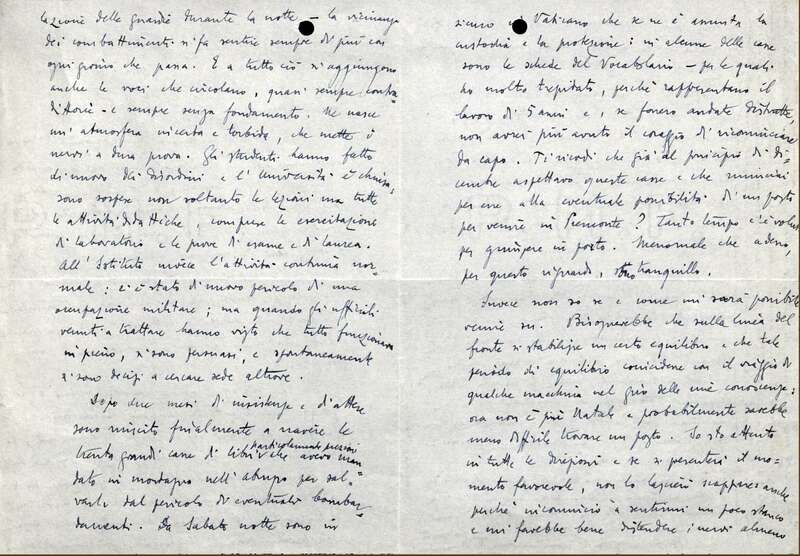 lazione delle guardie durante la notte – la vicinanza
dei combattimenti si fa sentire sempre di più con
ogni giorno che passa. E a tutto ciò si aggiungono
anche le voci che circolano, quasi sempre contra-
dittorie e sempre senza fondamento. Ne nasce
un' atmosfera incerta e torbida, che mette i
nervi a dura prova. Gli studenti hanno fatto
di nuovo dei disordini e l' Università è chiusa,
sono sospese non soltanto le lezioni ma tutte
le attività didattiche, comprese le esercitazioni
di laboratorio e le prove di esame e di laurea.
All' Istituto invece l'attività continua nor-
male: c'è stato di nuovo pericolo di una
occupazione militare; ma quando gli ufficiali
venuti a trattare hanno visto che tutto funzionava
in pieno, si sono persuasi, e spontaneamente
si sono decisi a cercare sede altrove.
Dopo due mesi di insistenze e di attese
sono riuscito finalmente a riavere le
trenta grandi casse di libri particolarmente preziosi che avevo man-
dato in montagna nell' abruzzo per sal-
varle dal pericolo di eventuali bombar-
damenti. Da Sabato notte sono in
sicuro in Vaticano che se ne è assunta la
custodia e la protezione: in alcune delle casse
sono le schede del Vocabolario – per le quali
ho molto trepidato, perchè rappresentano il
lavoro di 5 anni e, se fossero andate distrutte,
non avrei più avuto il coraggio di ricominciare
da capo. Ti ricordi che già al principio di di-
cembre aspettavo queste casse e che rinunciai
per esse alla eventuale possibilità d' un posto
per venire in Piemonte? Tanto tempo c'è voluto
per giungere in porto. Menomale che adesso,
per questo riguardo, sto tranquillo.
Invece non so se e come mi sarà possibile
venire su. Bisognerebbe che sulla linea del
fronte si stabilisse un certo equilibrio e che tale
periodo di equilibrio coincidesse con il viaggio di
qualche macchina nel giro delle mie conoscenze:
ora non è più Natale e probabilmente sarebbe
meno difficile trovare un posto. Io sto attento
in tutte le direzioni e se si presenterà il mo-
mento favorevole, non lo lascerò scappare anche
perchè incomincio a sentirmi un poco stanco
e mi farebbe bene distendere i nervi almeno